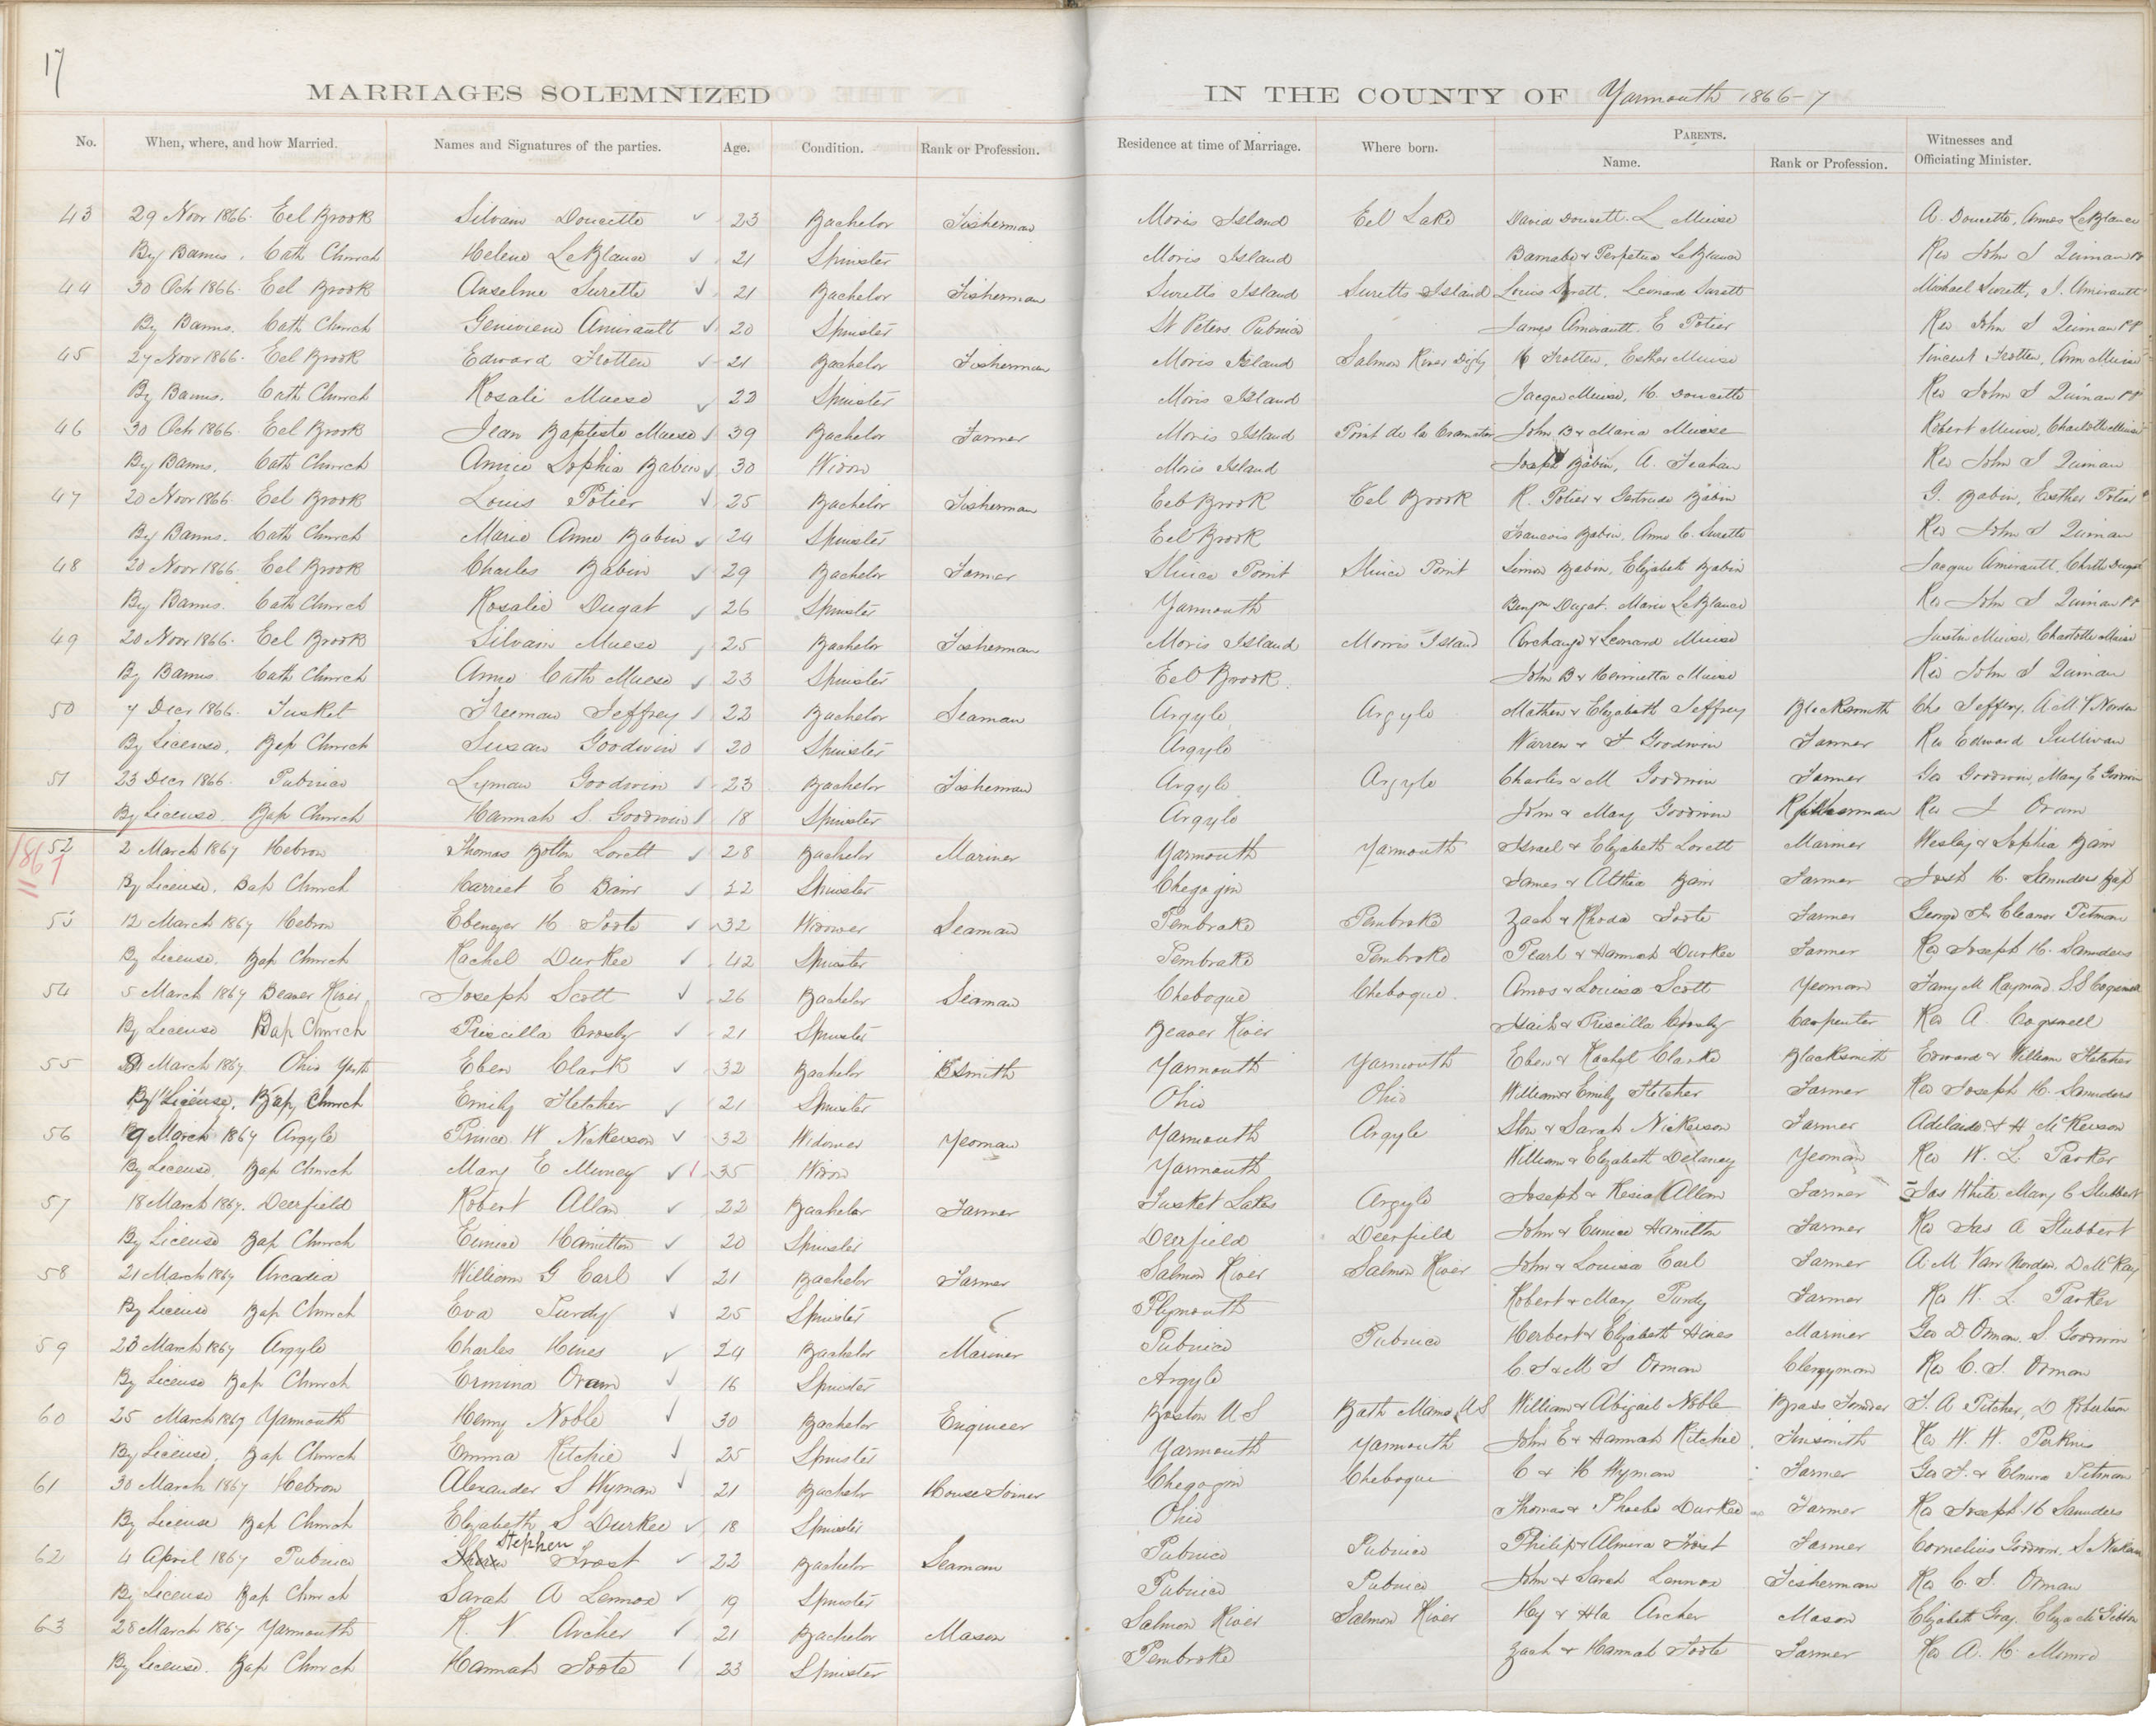 17
MARRIAGES SOLEMNIZED IN THE COUNTY OF Yarmouth 1866-7
No. When, where, and how Married. Names and Signatures of the parties. Age. Condition. Rank or Profession. Residence at time of Marriage. Where born. PARENTS. Name. Rank or Profession. Witnesses and Officiating Minister.
43 29 Novr 1866. Eel Brook Silvain Doucette 23 Bachelor Fisherman Moris Island Eel Lake David Doucett. L Muise A. Doucette, Amos LeBlance
By Banns. Cath Church Helene LeBlance 21 Spinster Moris Island Barnabe & Perpetua LeBlance Rev John S Quinan Pr
44 30 Oct 1866. Eel Brook Anselme Surette 21 Bachelor Fisherman Suretts Island Suretts Island Louis Surett. Leonard Surett Michael Surett, J. Amirault
By Banns. Cath Church Genivieve Amirault 20 Spinster St Peters Pubnico James Amirault. E Potier Rev John S Quinan PP
45 27 Novr 1866. Eel Brook Edward Frotten 21 Bachelor Fisherman Moris Island Salmon River Digby H Frotten, Esther Muise Vincent Frotten, Ann Muise
By Banns. Cath Church Rosali Muese 22 Spinster Moris Island Jacque Muise, H. Doucette Rev John S Quinan PP
46 30 Oct 1866. Eel Brook Jean Baptiste Muese 39 Bachelor Farmer Moris Island Point de la John B & Maria Muise Robert Muise, Charlotte Muise
By Banns. Cath Church Annie Sophia Babin 30 Widow Moris Island Joseph Babin, A. Rev John S Quinan
47 20 Novr 1866. Eel Brook Louis Potier 25 Bachelor Fisherman Eel Brook Eel Brook R. Potier & Gertruse Babin G. Babin, Esther Potier
By Banns. Cath Church Marie Anne Babin 24 Spinster Eel Brook Francois Babin, Anne C. Surette Rev John S Quinan
48 20 Novr 1866. Eel Brook Charles Babin 29 Bachelor Farmer Sluice Point Sluice Point Simon Babin, Elizabeth Babin Jacque Amirault,
By Banns. Cath Church Rosalie Dugat 26 Spinster Yarmouth Benjm Dugat. Marie LeBlance Rev John S Quinan Pr
49 20 Novr 1866. Eel Brook Silvain Muese 25 Bachelor Fisherman Moris Island Morris Island Archange & Leonard Muise Justin Muise, Charlotte Muise
By Banns. Cath Church Anne Cath Muese 23 Spinster Eel Brook. John B & Henrietta Muise Rev John S Quinan
50 7 Decr 1866. Tusket Freeman Jeffrey 22 Bachelor Seaman Argyle Argyle Mathew & Elizabeth Jeffrey Blacksmith Chs Jeffery, A. M. V Norden
By License. Bap Church Susan Goodwin 20 Spinster Argyle Warren & J Goodwin Farmer Rev Edward Sullivan
51 23 Decr 1866. Pubnico Lyman Goodwin 23 Bachelor Fisherman Argyle Argyle Charles & M Goodwin Farmer Geo Goodwin, Mary E Goodwin
By License. Bap Church Hannah S. Goodwin 18 Spinster Argyle John & Mary Goodwin Fisherman Rev J Oram
1867
52 2 March 1867 Hebron Thomas Bolton Lovett 28 Bachelor Mariner Yarmouth Yarmouth Israel & Elizabeth Lovett Mariner Wesley & Sophia Bain
By License. Bap Church Harriet E Bain 22 Spinster Chegogin James & Althia Bain Farmer Josh H. Saunders Bap
53 12 March 1867 Hebron Ebenezer H Foote 32 Widower Seaman Pembroke Pembroke Zach & Rhoda Foote Farmer George & Eleanor Pitman
By License. Bap Church Rachel Durkee 42 Spinster Pembroke Pembroke Pearl & Hannah Durkee Farmer Rev Joseph H. Saunders
54 5 March 1867 Beaver River Joseph Scott 26 Bachelor Seaman Cheboque Cheboque. Amos & Louisa Scott Yeoman Fanny M Raymond. S S Cogswell
By License Bap Church Priscilla Crosby 21 Spinster Beaver River & Priscilla Crosby Carpenter Rev A. Cogswell
55 March 1867. Ohio Yarth Eben Clark 32 Bachelor B Smith Yarmouth Yarmouth Eben & Rachel Clarke Blacksmith Edward & William Fletcher
By License. Bap Church Emily Fletcher 21 Spinster Ohio Ohio William & Emily Fletcher Farmer Rev Joseph H. Saunders
56 9 March 1867 Argyle Prince W Nickerson 32 Widower Yeoman Yarmouth Argyle Ston & Sarah Nickerson Farmer Adelaide & H McKenson
By License. Bap Church Mary E Muney 35 Widow Yarmouth William & Elizabeth Delaney Yeoman Rev W. L. Parker
57 18 March 1867. Deerfield Robert Allan 22 Bachelor Farmer Tusket Lakes Argyle Joseph & Kesia Allan Farmer Jas White Mary C Stubbert
By License Bap Church Eunice Hamilton 20 Spinster Deerfield Deerfield John & Eunice Hamilton Farmer Rev Jas A Stubbert
58 21 March 1867 Arcadia William G Earl 21 Bachelor Farmer Salmon River Salmon River John & Louisa Earl Farmer A. M Van Norden, D McKay
By License Bap Church Eva Purdy 25 Spinster Plymouth Robert & Mary Purdy Farmer Rev W. L. Parker
59 23 March 1867 Argyle Charles Hines 24 Bachelor Mariner Pubnico Pubnico Herbert & Elizabeth Hines Mariner Geo D Orman, S. Goodwin
By License Bap Church Ermina Oram 16 Spinster Argyle C. J & M J Orman Clergyman Rev C. J. Orman
60 25 March 1867 Yarmouth Henry Noble 30 Bachelor Engineer Boston U S Bath Maine, U S William & Abigail Noble Brass Founder J. A Pitcher, D Robertson
By License. Bap Church Emma Ritchie 25 Spinster Yarmouth Yarmouth John E & Hannah Ritchie Tinsmith Rev W. H. Perkins
61 30 March 1867 Hebron Alexander S Wyman 21 Bachelor House Joiner Chegogin Cheboque C & H Wyman Farmer Geo J. & Elmira Pitman
By License Bap Church Elizabeth S Durkee 18 Spinster Ohio Thomas & Phoebe Durkee Farmer Rev Joseph H Saunders
Stephen
62 4 April 1867 Pubnico Frost 22 Bachelor Seaman Pubnico Pubnico Philip & Almira Frost Farmer Cornelius Goodwin, S
By License Bap Church Sarah A Lennox 19 Spinster Pubnico Pubnico John & Sarah Lennox Fisherman Rev C. J. Orman
63 28 March 1867 Yarmouth R. V Archer 21 Bachelor Mason Salmon River Salmon River Hy & Hla Archer Mason Elizabeth Gray, Eliza McGibbon
By License. Bap Church Hannah Foote 23 Spinster Pembroke Zach & Hannah Foote Farmer Rev A. H. Munro